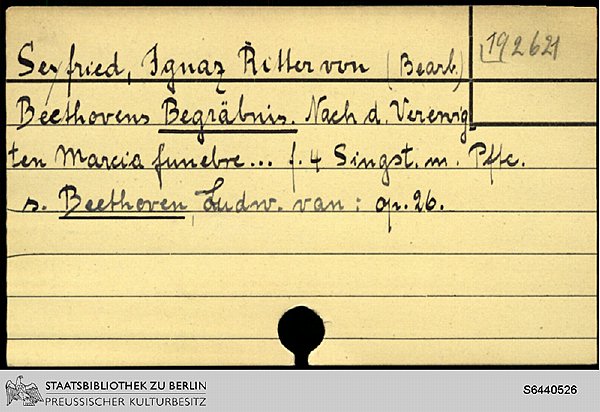 Seyfried, Ignaz Ritter von (Bearb.)
192621
Beethovens Begräbnis. Nach d. Verewig
ten Marcia funebre... f. 4 Singst. m. Pfte.
s. Beethoven, Ludw. van: op. 26.
STAATSBIBLIOTHEK ZU BERLIN
PREUSSISCHER KULTURBESITZ
S6440526